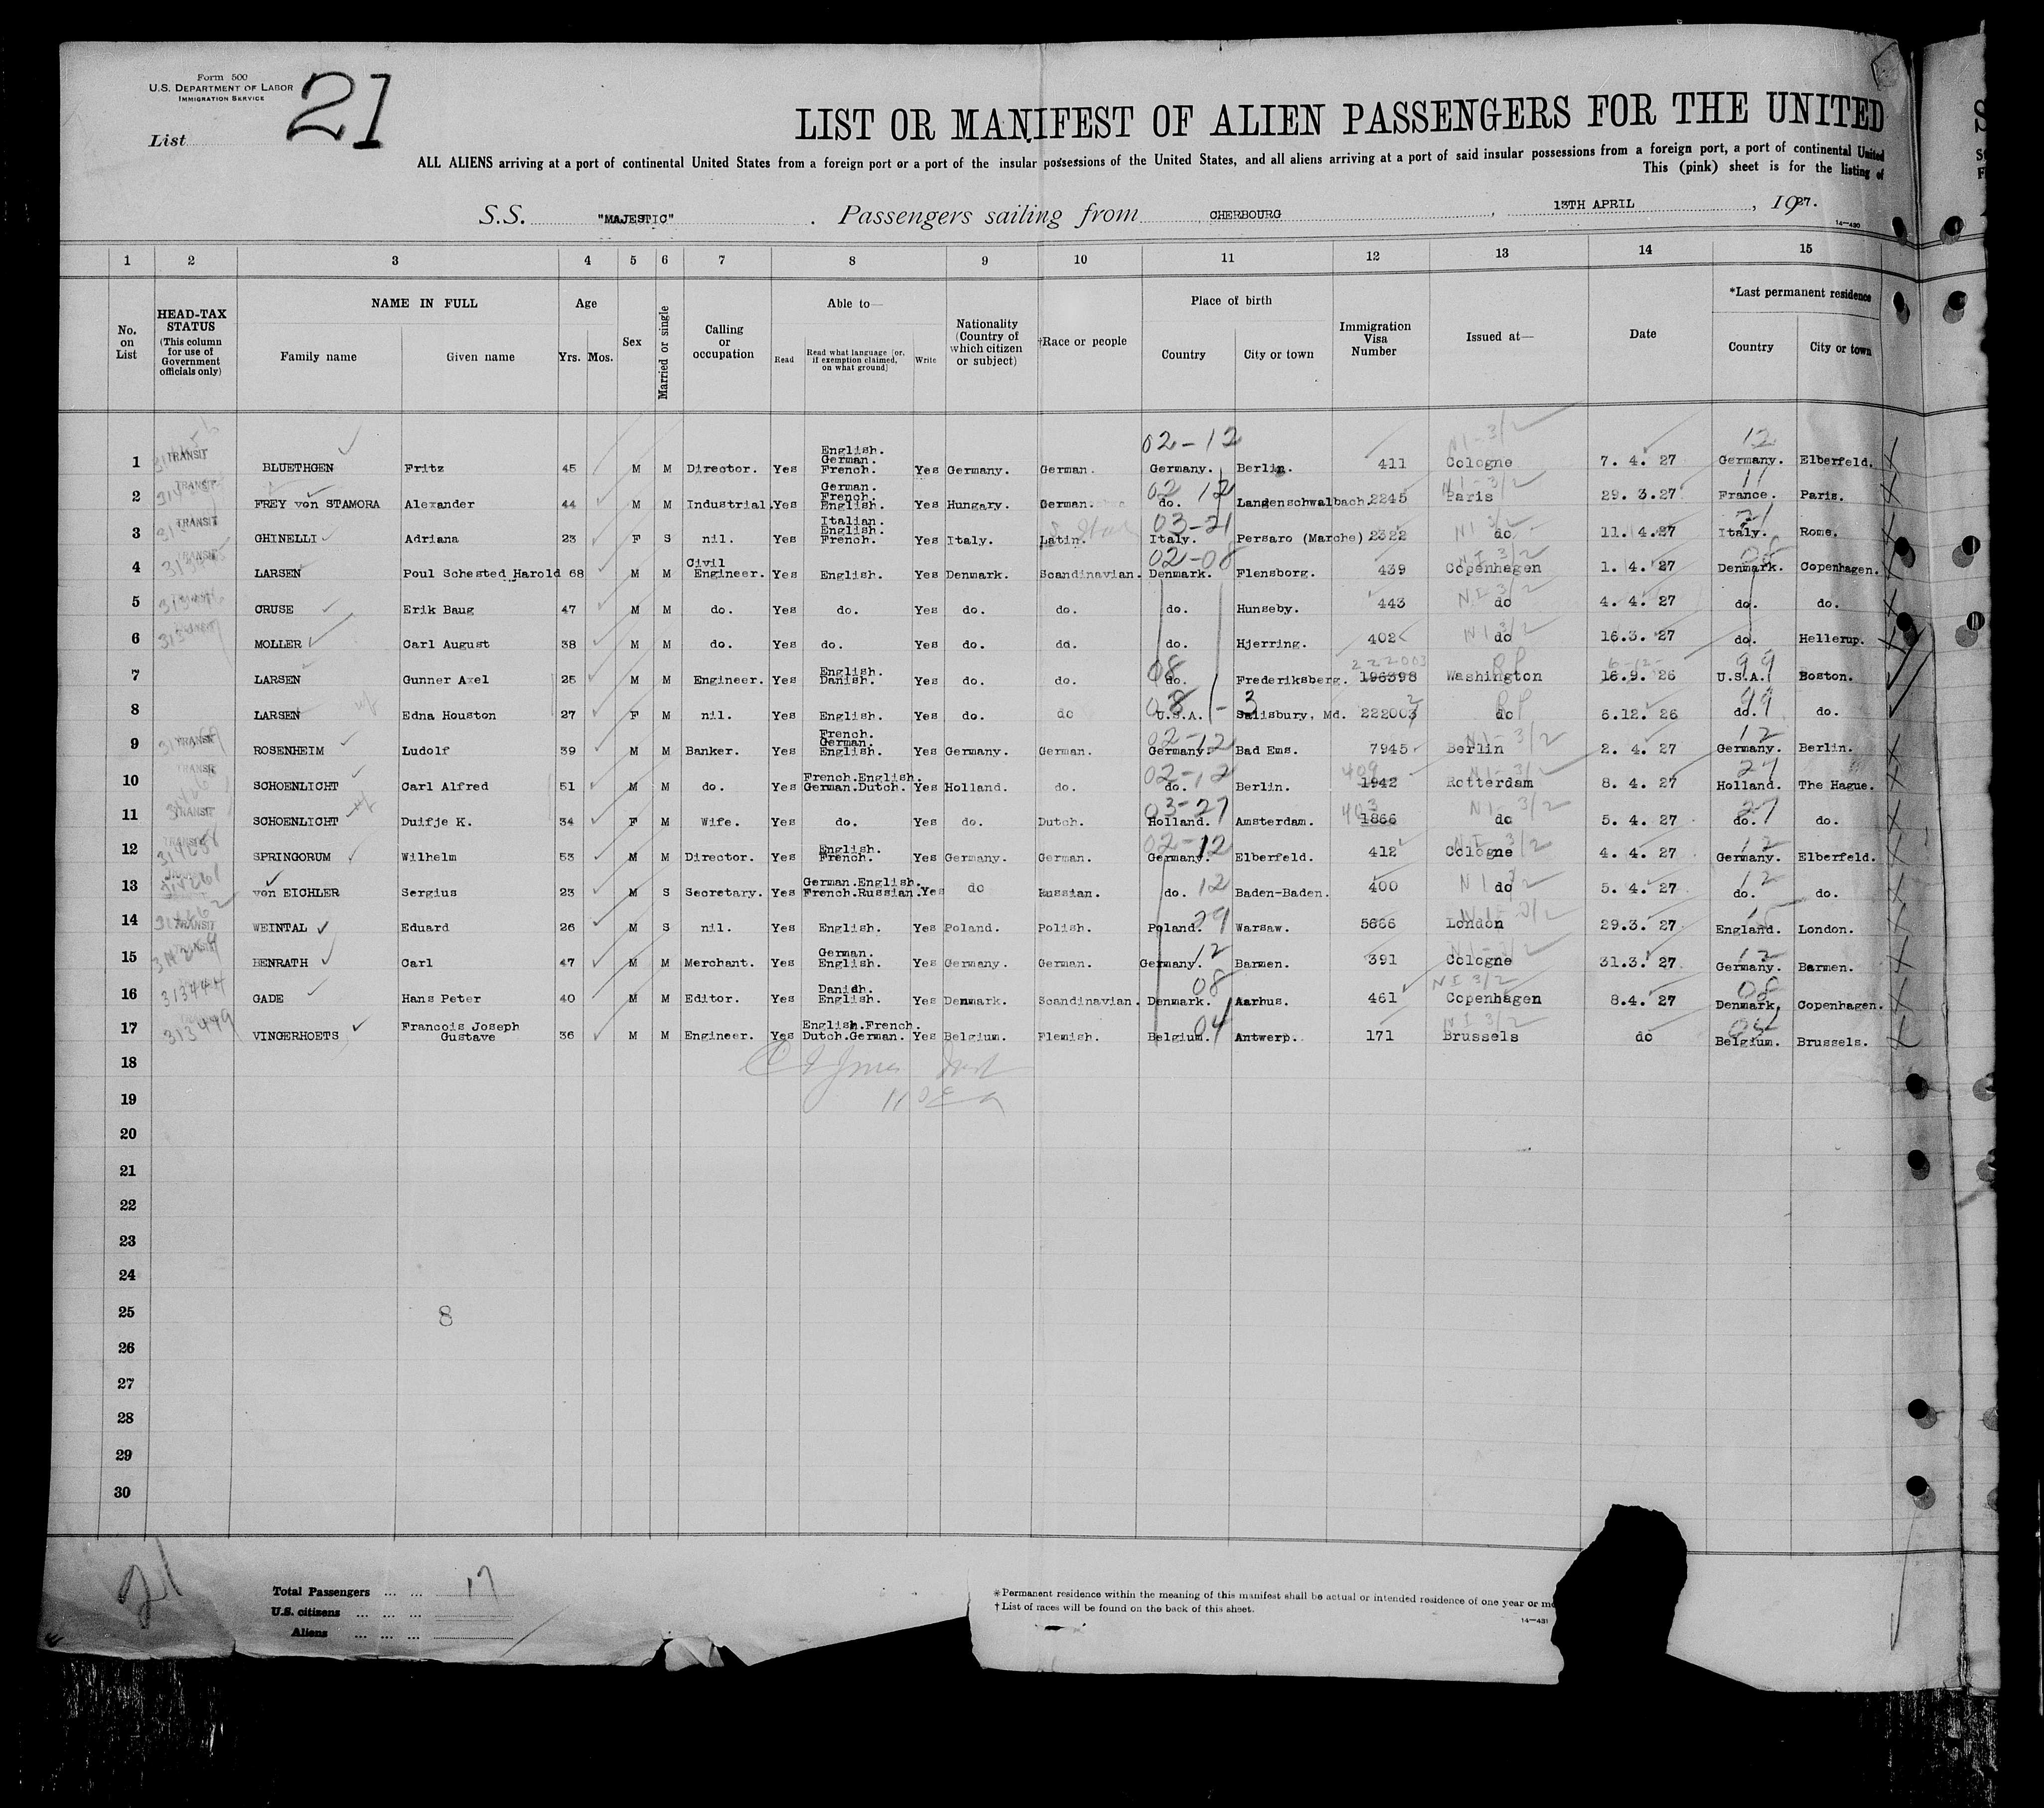 Form 500
U.S. DEPARTMENT OF LABOR
IMMIGRATION SERVICE
List 21
LIST OR MANIFEST OF ALIEN PASSENGERS FOR THE UNITED
ALL ALIENS arriving at a port of continental United States from a foreign port or a port of the insular possessions of the United States, and all aliens arriving at a port of said insular possessions from a foreign port, a port of continental United
This (pink) sheet is for the listing of
S.S. "MAJESTIC". Passengers sailing from CHERBOURG, 13TH APRIL, 1927.
14—430
1 2 3 4 5 6 7 8 9 10 11 12 13 14 15
No. on List
HEAD-TAX STATUS (This column for use of Government officials only)
NAME IN FULL Family name Given name
Age Yrs. Mos.
Sex
Married or single
Calling or occupation
Able to— Read Read what language [or, if exemption claimed, on what ground] Write
Nationality (Country of which citizen or subject)
†Race or people
Place of birth Country City or town
Immigration Visa Number
Issued at—
Date
*Last permanent residence Country City or town
1 TRANSIT BLUETHGEN Fritz 45 M M Director. Yes English. German. French. Yes Germany. German. 02-12 Germany. Berlin. 411 NI-3/2 Cologne 7. 4. 27 12 Germany. Elberfeld.
2 TRANSIT FREY von STAMORA Alexander 44 M M Industrial. Yes German. French. English. Yes Hungary. German. 02 12 do. Langenschwalbach. 2245 NI-3/2 Paris 29. 3.27 11 France. Paris.
3 TRANSIT GHINELLI Adriana 23 F S nil. Yes Italian. English. French. Yes Italy. Latin. 03-21 Italy. Persaro (Marche) 2322 NI 3/2 do 11. 4.27 21 Italy. Rome.
4 TRANSIT LARSEN Poul Schested Harold 68 M M Civil Engineer. Yes English. Yes Denmark. Scandinavian. 02-08 Denmark. Flensborg. 439 NI 3/2 Copenhagen 1. 4. 27 08 Denmark. Copenhagen.
5 CRUSE Erik Baug 47 M M do. Yes do. Yes do. do. do. Hunseby. 443 NI 3/2 do 4. 4. 27 do. do.
6 MOLLER Carl August 38 M M do. Yes do. Yes do. do. do. Hjerring. 402 NI 3/2 do 16.3. 27 do. Hellerup.
7 LARSEN Gunner Axel 25 M M Engineer. Yes English. Danish. Yes do. do. 08 do. Frederiksberg. 222003 196398 RP Washington 6-12- 16.9. 26 99 U.S.A. Boston.
8 LARSEN wf Edna Houston 27 F M nil. Yes English. Yes do. do 08 - 3 U.S.A. Salisbury, Md. 222003 2 RP do 6.12. 26 99 do. do.
9 TRANSIT ROSENHEIM Ludolf 39 M M Banker. Yes French. German. English. Yes Germany. German. 02-12 Germany. Bad Ems. 7945 NI-3/2 Berlin 2. 4. 27 12 Germany. Berlin.
10 TRANSIT SCHOENLICHT Carl Alfred 51 M M do. Yes French.English. German.Dutch. Yes Holland. do. 02-12 do. Berlin. 409 1942 NI-3/2 Rotterdam 8. 4. 27 27 Holland. The Hague.
11 TRANSIT SCHOENLICHT wf Duifje K. 34 F M Wife. Yes do. Yes do. Dutch. 03-27 Holland. Amsterdam. 403 1866 NI-3/2 do 5. 4. 27 27 do. do.
12 TRANSIT SPRINGORUM Wilhelm 53 M M Director. Yes English. French. Yes Germany. German. 02-12 Germany. Elberfeld. 412 NI 3/2 Cologne 4. 4. 27 12 Germany. Elberfeld.
13 von EICHLER Sergius 23 M S Secretary. Yes German.English. French.Russian. Yes do Russian. 12 do. Baden-Baden. 400 NI do 5. 4. 27 12 do. do.
14 TRANSIT WEINTAL Eduard 26 M S nil. Yes English. Yes Poland. Polish. 29 Poland. Warsaw. 5666 London 29.3. 27 England. London.
15 TRANSIT BENRATH Carl 47 M M Merchant. Yes German. English. Yes Germany. German. 12 Germany. Barmen. 391 Cologne 31.3. 27 12 Germany. Barmen.
16 313444 GADE Hans Peter 40 M M Editor. Yes Danish. English. Yes Denmark. Scandinavian. 08 Denmark. Aarhus. 461 NI 3/2 Copenhagen 8.4. 27 08 Denmark, Copenhagen.
17 313499 VINGERHOETS Francois Joseph Gustave 36 M M Engineer. Yes English.French. Dutch.German. Yes Belgium. Flemish. 04 Belgium. Antwerp. 171 NI 3/2 Brussels do Belgium. Brussels.
18
19
20
21
22
23
24
25 8
26
27
28
29
30
21
Total Passengers 17
U.S. citizens
Aliens
*Permanent residence within the meaning of this manifest shall be actual or intended residence of one year or
†List of races will be found on the back of this sheet.
14—431